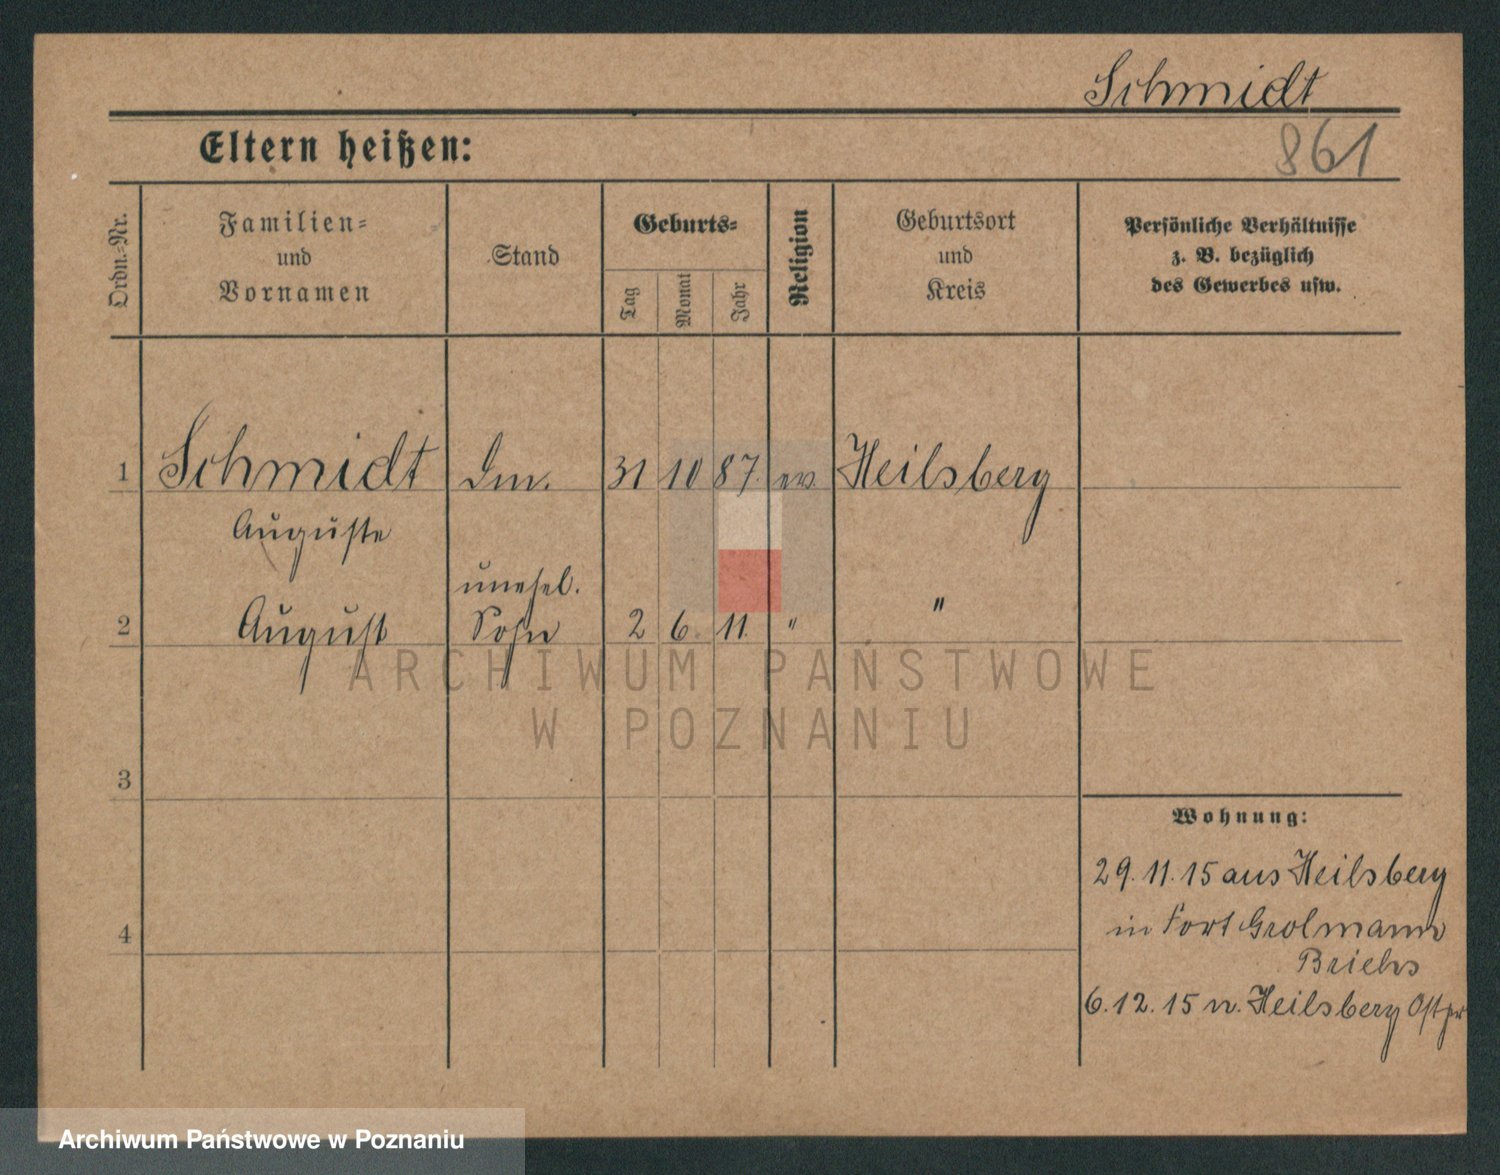 Schmidt
Eltern heißen:
861
Ordn.-Nr.
Familien-
und
Vornamen
Stand
Geburts-
Tag
Monat
Jahr
Religion
Geburtsort
und
Kreis
Persönliche Verhältnisse
z. B. bezüglich
des Gewerbes usw.
1 Schmidt 31 10 87. ev. Heilsberg
Auguste
unehel.
2 August Sohn 2 6. 11. " "
ARCHIWUM PAŃSTWOWE
W POZNANIU
3
Wohnung:
29.11.15 aus Heilsberg
4
in Fort Grolmann
6.12.15 n. Heilsberg Ostpr
Archiwum Państwowe w Poznaniu